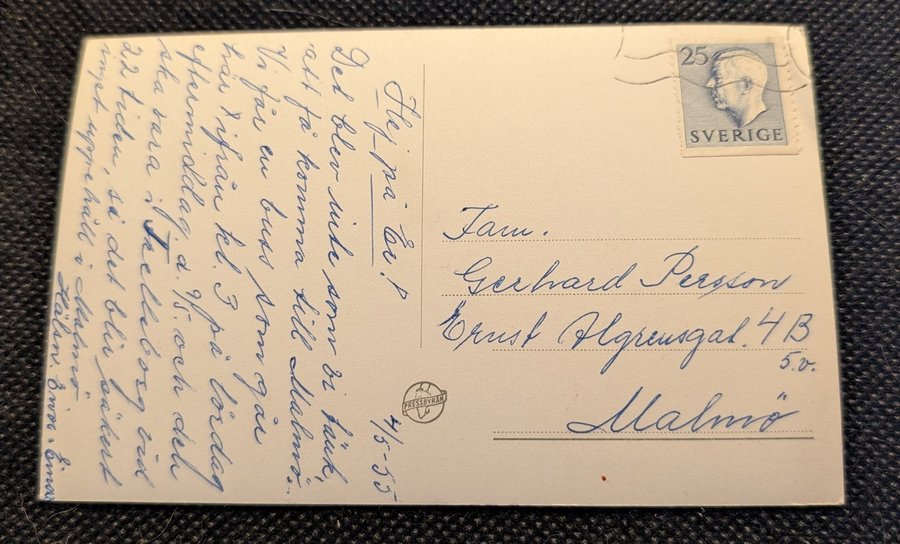 Hej på Er!
4/5-55
Det blev inte som vi tänk,
att få komma till Malmö.
Vi får en buss som går
härifrån kl. 3 på lördag
eftermiddag d. 9/5. och den
ska vara i Trelleborg vid
22 tiden, så det blir säkert
inget uppehåll i Malmö
Hälsn.
25
SVERIGE
Fam.
Gerhard Persson
Ernst Algrensgat. 4 B
5.v.
Malmö
PRESSBYRÅN